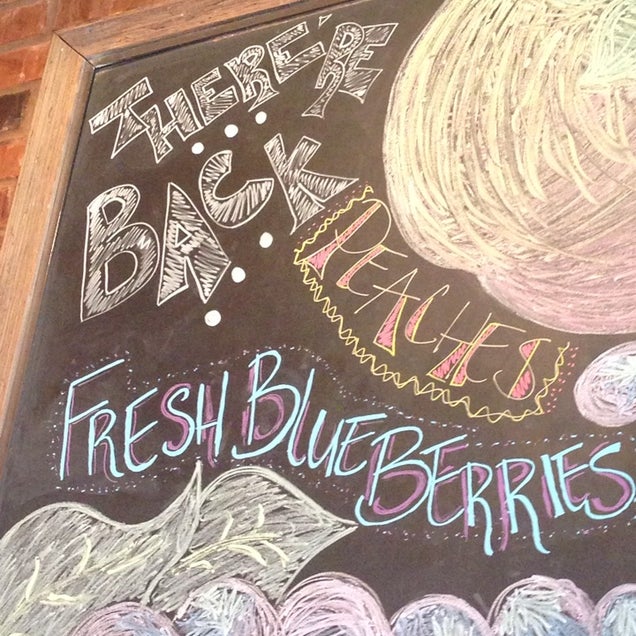 THERE'RE
BACK
PEACHES
FRESH BLUEBERRIES